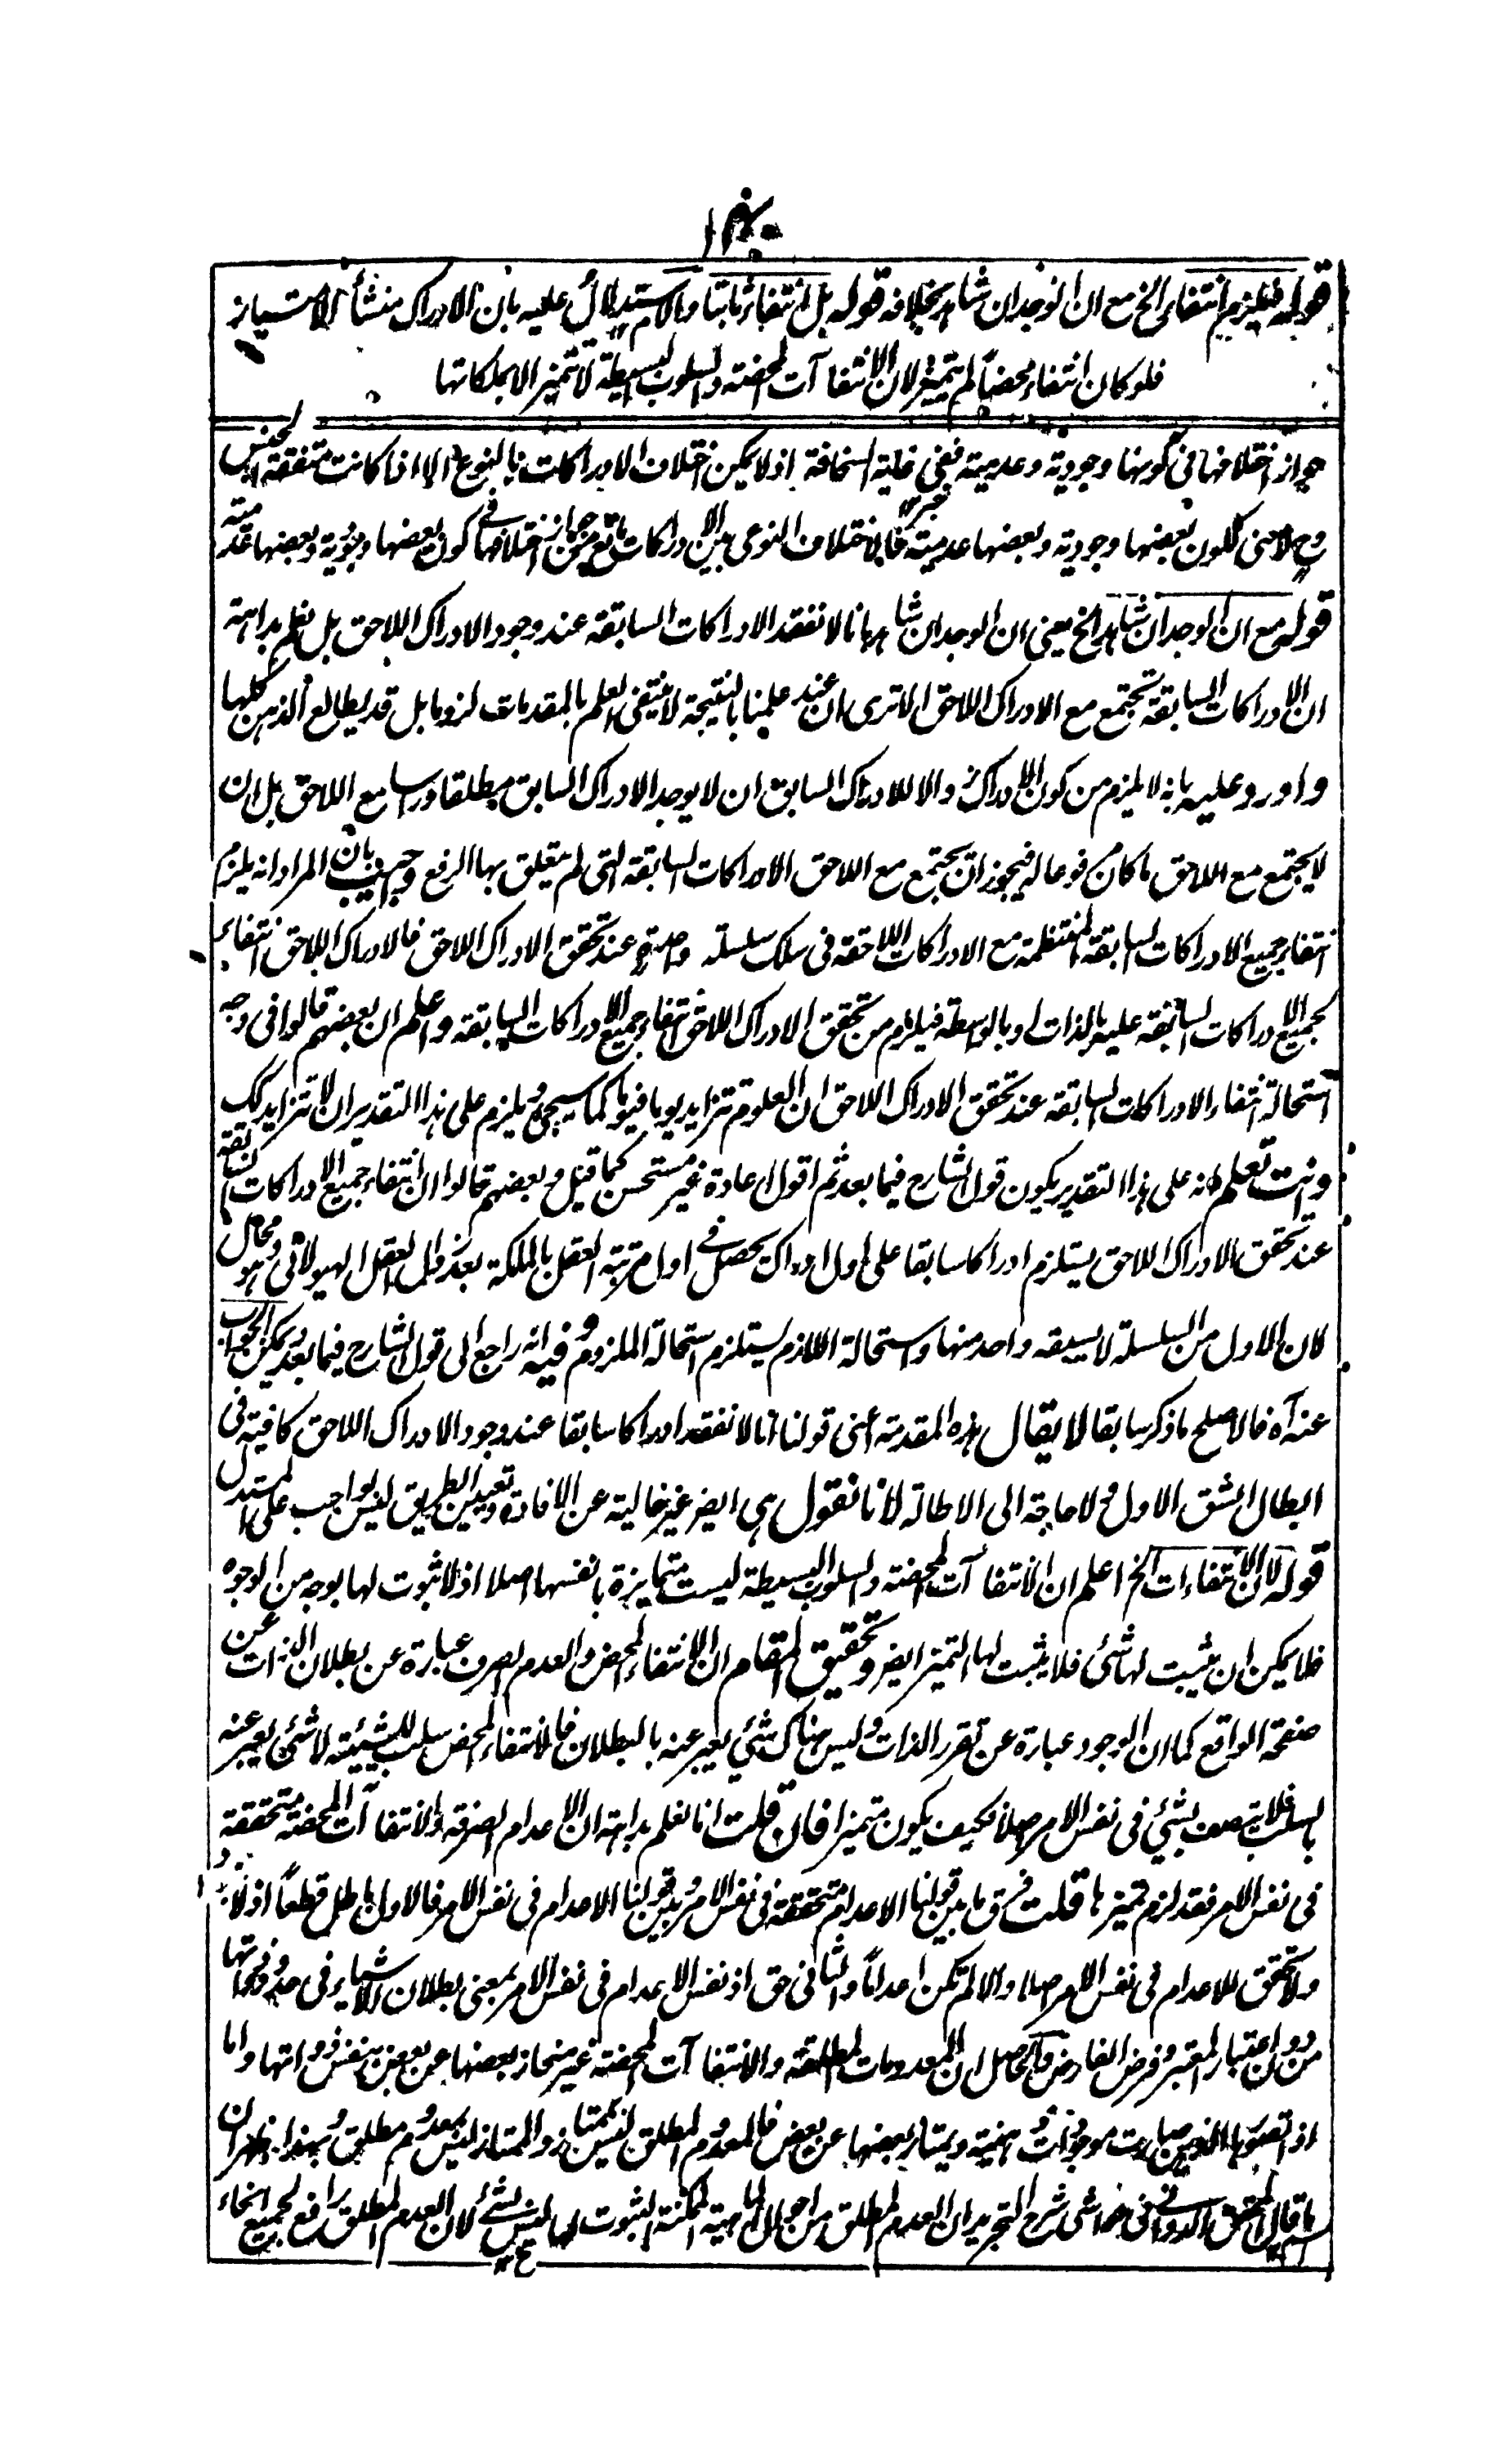 قوله فيلزم انتفاء الخ مع ان الوجدان شاهد بخلافه قوله بل انتفاء ثابتا والاستدلال عليه بان الادراك منشأ الامتياز
فلو كان انتفاء محضاً لم يتميز لان الانتفاآت المحضته والسلوب البسيطة لا تتميز الا بملكاتها
جواز اختلافها فى كونها وجودية وعدمية ففى غاية السخافة اذ لا يمكن اختلاف الادراكات بالنوع الا اذا كانت متفقة الجنس
وح لا معنى لكون بعضها وجودية وبعضها عدمية فالاختلاف النوعى بين الادراكات مانع من جواز اختلافها فے كون بعضها وجودية وبعضها عدمية
قوله مع ان الوجدان شاهد الخ يعنى ان الوجدان شاهد بانا لا نفقد الادراكات السابقة عند وجود الادراك اللاحق بل نعلم بداهة
ان الادراكات السابقة تجتمع مع الادراك اللاحق الا ترى ان عند علمنا بالنتيجة لا ينتفى العلم بالمقدمات لزوما بل قد يطالع الذهن كلها
واورد عليه بانه لا يلزم من كون الادراك زوالا للادراك السابق ان لا يوجد الادراك السابق مطلقا وراسا مع اللاحق بل ان
لا يجتمع مع اللاحق ما كان مرفوعا له فيجوز ان يجتمع مع اللاحق الادراكات السابقة التى لم يتعلق بها الرفع واجيب بان المراد انه يلزم
انتفاء جميع الادراكات السابقة المنتظمة مع الادراكات اللاحقة فى سلك سلسلة واحدة عند تحقق الادراك اللاحق فالادراك اللاحق انتفاء
لجميع الادراكات السابقة عليه بالذات او بالواسطة فيلزم من تحقق الادراك اللاحق انتفاء جميع الادراكات السابقة واعلم ان بعضهم قالوا فى وجه
استحالة انتفاء الادراكات السابقة عند تحقق الادراك اللاحق ان العلوم تتزايد يوما فيوما كما سيجئ ويلزم على هذا التقدير ان لا تتزايد كك
وانت تعلم انه على هذا التقدير يكون قول الشارح فيما بعد ثم اقول اعادة غير مستحسن كما قيل وبعضهم قالوا ان انتفاء جميع الادراكات السابقة
عند تحقق الادراك اللاحق يستلزم ادراكا سابقا على اول ادراك يحصل فے اول مرتبة العقل بالملكة بعد زوال العقل الهيولانى وهو محال
لان الاول من السلسلة لا يسبقه واحد منها واستحالة اللازم يستلزم استحالة الملزوم وفيه انه راجع الى قول الشارح فيما بعد ويمكن الجواب
عنه آه فالاصلح ما ذكر سابقا لا يقال هذه المقدمة اعنى قولنا انا لا نفقد ادراكا سابقا عند وجود الادراك اللاحق كافية فى
ابطال الشق الاول فلا حاجة الى الاطالة لانا نقول هى ايضر غير خالية عن الافادة وتعيين الطريق ليس بواجب على المستدل
قوله لان الانتفاءات الخ اعلم ان الانتفاآت المحضته والسلوب البسيطة ليست متمايزة بانفسها اصلا اذ لا ثبوت لها بوجه من الوجوه
فلا يمكن ان يثبت لها شئ فلا يثبت لها التميز ايضر وتحقيق المقام ان الانتفاء المحض والعدم الصرف عبارة عن بطلان الذات عن
صفحة الواقع كما ان الوجود عبارة عن تقرر الذات وليس هناك شئ يعبر عنه بالبطلان فالانتفاء المحض سلب للشيئية لا شئ يعبر عنه
بالسلب فلا يتصف بشئ فى نفس الامر اصلا فكيف يكون متميزا فان قلت انا نعلم بداهة ان الاعدام الصرفة والانتفاآت المحضة متحققة
فى نفس الامر فقد لزم تميزها قلت فرق ما بين قولنا الاعدام متحققة فى نفس الامر وبين قولنا الاعدام فى نفس الامر فالاول باطل قطعاً اذ لا
ولا تحقق للاعدام فى نفس الامر اصلا والا لم تكن اعداماً والثانى حق اذ نفس الاعدام فى نفس الامر بمعنى بطلان الاشياء فى حدود ذواتها
من دون اعتبار المعتبر وفرض الفارض والحاصل ان المعدومات المطلقة والانتفاآت المحضته غير منحاز بعضها عن بعض بنفس ذواتها واما
اذا تصورها الذهن صارت موجودات ذهنية ويمتاز بعضها عن بعض فالمعدوم المطلق ليس بممتاز والممتاز ليس بمعدوم مطلق وبهذا ظهر ان
ما قال المحقق الدوانى فى حواشى شرح التجريد ان العدم المطلق من احوال الماهية الممكنة الثبوت لها ليس بشئ لان العدم المطلق رافع لجميع انحاء